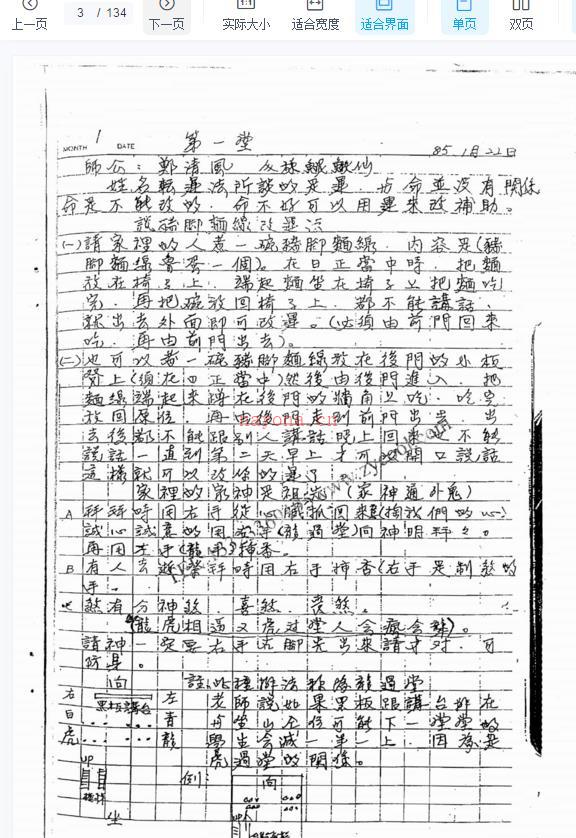 上一页
3 / 134
下一页
实际大小
适合宽度
适合界面
单页
双页
MONTH 1 DATE 第一堂 85 1月22日
師公：鄭清風
姓名転運法所談的是運．占命並没有関係
命是不能改的．命不好可以用運來改補助。
豬脚麵線改運法
(一)請家裡的人煮一碗豬脚麵線．内容是(豬
脚麵線魯蛋一個)。在日正當中時．把麵
放在椅子上．端起麵坐在椅子上把麵吃
完．再把碗放回椅子上．都不能講話．
就出去外面即可改運。(必須由前門回來
吃．再由前門出去)。
(二)也可以煮一碗豬脚麵線放在後門的外板
凳上(須在日正當中)然後由後門進入．把
麵線端起來蹲在後門的牆角上吃．吃完
放回原位．再由後門走到前門出去．出
去後都不能跟別人講話晚上回來也不能
說話一直到第二天早上才可以開口說話
這樣就可以改你的運了
家裡的家神是祖先(家神通外鬼)
A 拜拜時用右手從心臟抓回來(掏我們的心)
誠心誠意的用(龍過堂)向神明拜々。
再用左手(龍手)挿香。
B 有人去逝祭拜時用右手挿香(右手是制煞的
手。
煞有分神煞．喜煞．喪煞。
(龍虎相逼又虎过堂人会瘋会)。
請神一定要右手左脚先出來請才对．可
防身。
向
註：此種辦法称為龍過堂
黑板講台
右白虎
左青龍
老師說如果黑板跟講台排在
可能下一堂堂的
學生会減一半一上．因為是
虎過堂的関係。
UP
樓梯
例：
向
坐
UP
nayona.cn